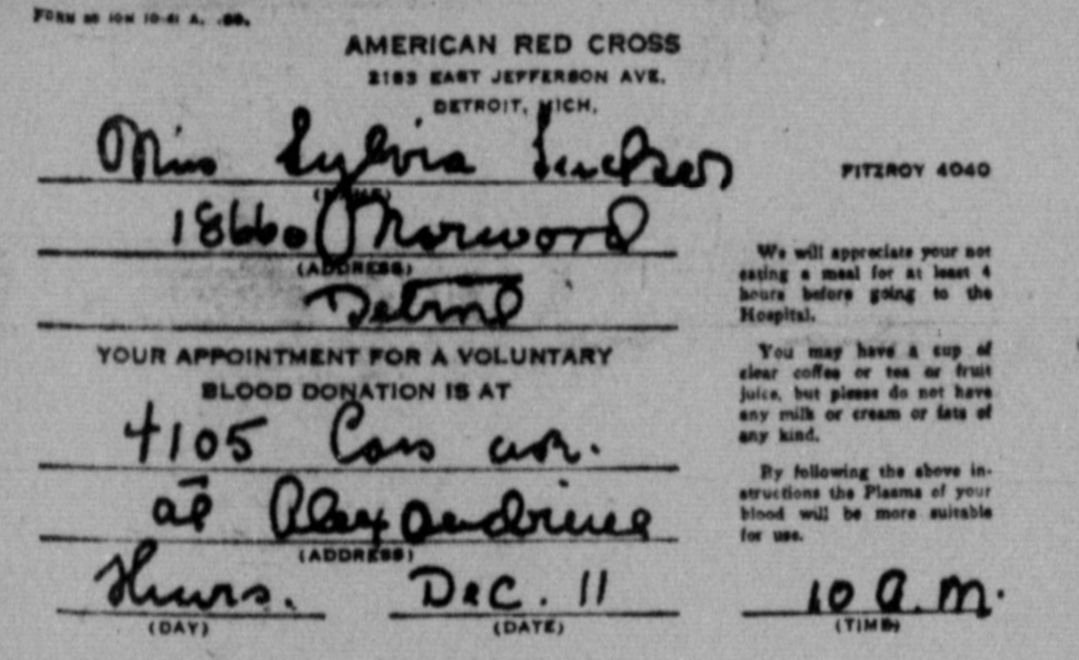 FORM 50 10M 10-41 A.
AMERICAN RED CROSS
2183 EAST JEFFERSON AVE.
DETROIT, MICH.
Miss Sylvia Tucker
(NAME)
18660 Norwood
(ADDRESS)
Detroit
YOUR APPOINTMENT FOR A VOLUNTARY
BLOOD DONATION IS AT
4105 Cass ave.
at Alexandrine
(ADDRESS)
Thurs.
(DAY)
Dec. 11
(DATE)
FITZROY 4040
We will appreciate your not
eating a meal for at least 4
hours before going to the
Hospital.
You may have a cup of
clear coffee or tea or fruit
juice, but please do not have
any milk or cream or fats of
any kind.
By following the above in-
structions the Plasma of your
blood will be more suitable
for use.
10 A.M.
(TIME)